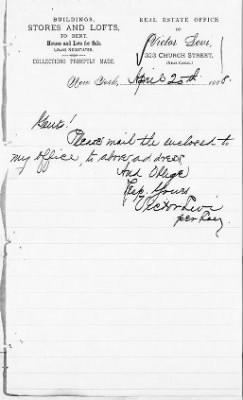 BUILDINGS,
STORES AND LOFTS,
TO RENT.
Houses and Lots for Sale.
LOANS NEGOTIATED.
COLLECTIONS PROMPTLY MADE.
REAL ESTATE OFFICE
OF
Victor Levi,
323 CHURCH STREET,
New York, April 25th 188
Gents!
Please mail the enclosed to
my office, to above address
And Oblige
Resp. Yours
Victor Levi
per